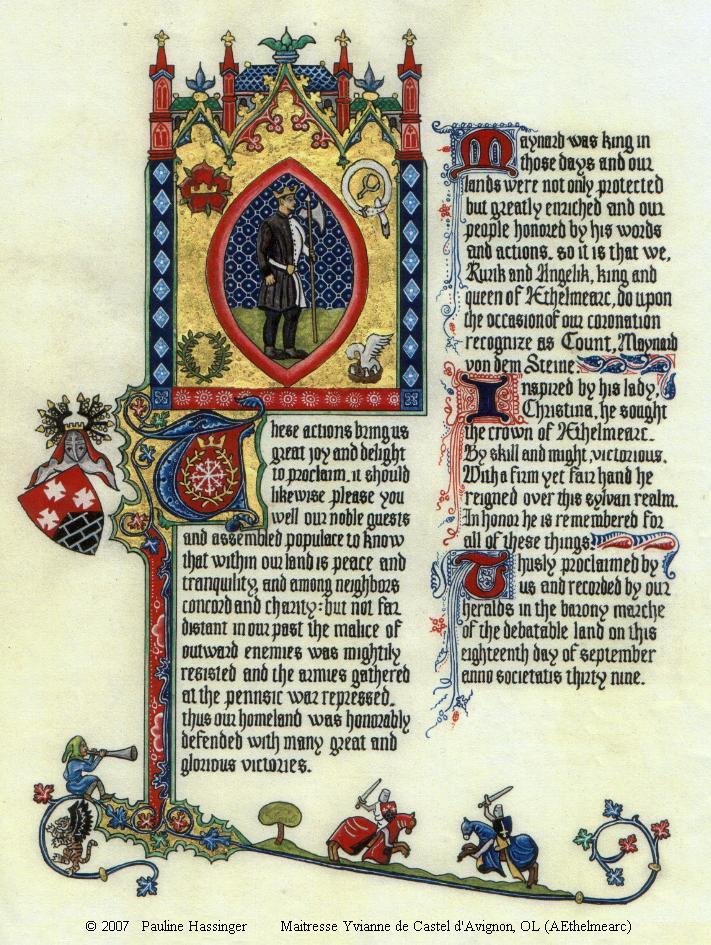 These actions bring us
great joy and delight
to proclaim. it should
likewise please you
well our noble guests
and assembled populace to know
that within our land is peace and
tranquility, and among neighbors
concord and charity: but not far
distant in our past the malice of
outward enemies was mightily
resisted and the armies gathered
at the pennsic war repressed.
thus our homeland was honorably
defended with many great and
glorious victories.
Maynard was king in
those days and our
lands were not only protected
but greatly enriched and our
people honored by his words
and actions. so it is that we,
Rurik and Angelik, king and
queen of Æthelmearc, do upon
the occasion of our coronation
recognize as Count, Maynard
von dem Steine.
Inspired by his lady,
Christina, he sought
the crown of Æthelmearc.
By skill and might, victorious.
With a firm yet fair hand he
reigned over this sylvan realm.
In honor he is remembered for
all of these things.
Thusly proclaimed by
us and recorded by our
heralds in the barony marche
of the debatable land on this
eighteenth day of september
anno societatis thirty nine.
© 2007 Pauline Hassinger Maitresse Yvianne de Castel d'Avignon, OL (AEthelmearc)